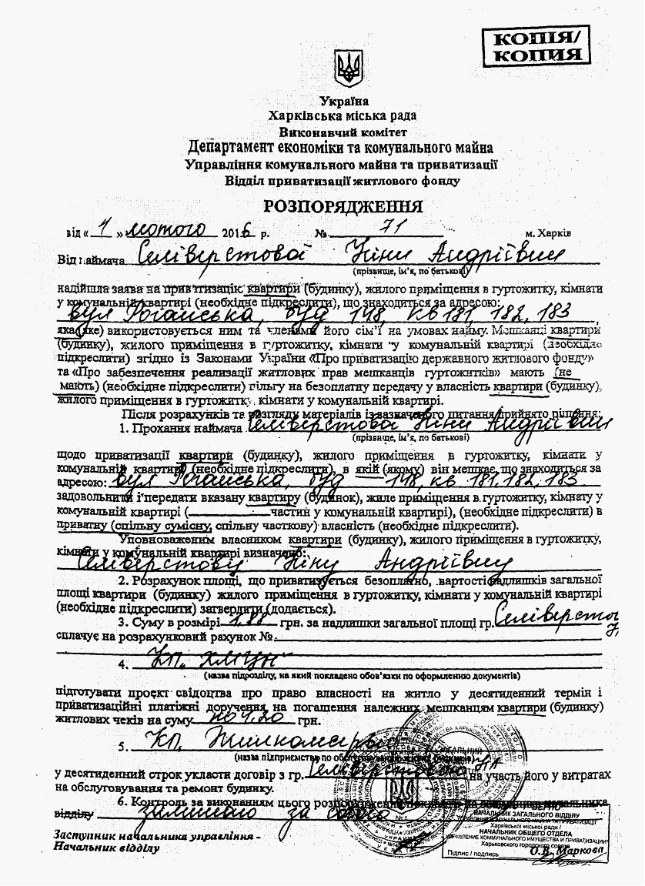 КОПІЯ/
КОПИЯ
Україна
Харківська міська рада
Виконавчий комітет
Департамент економіки та комунального майна
Управління комунального майна та приватизації
Відділ приватизації житлового фонду
РОЗПОРЯДЖЕННЯ
від « 1 » лютого 2016 р. № 71 м. Харків
Від наймача Селіверстової Ніни Андріївни
(прізвище, ім'я, по батькові)
надійшла заява на приватизацію квартири (будинку), жилого приміщення в гуртожитку, кімнати
у комунальній квартирі (необхідне підкреслити), що знаходиться за адресою:
вул Роганська, буд 148, кв 181, 182, 183
яка (яке) використовується ним та членами його сім'ї на умовах найму. Мешканці квартири
(будинку), жилого приміщення в гуртожитку, кімнати у комунальній квартирі (необхідне
підкреслити) згідно із Законами України «Про приватизацію державного житлового фонду»
та «Про забезпечення реалізації житлових прав мешканців гуртожитків» мають (не
мають) (необхідне підкреслити) пільгу на безоплатну передачу у власність квартири (будинку),
жилого приміщення в гуртожитку, кімнати у комунальній квартирі.
Після розрахунків та розгляду матеріалів із зазначеного питання прийнято рішення:
1. Прохання наймача Селіверстової Ніни Андріївни
(прізвище, ім'я, по батькові)
щодо приватизації квартири (будинку), жилого приміщення в гуртожитку, кімнати у
комунальній квартирі (необхідне підкреслити), в якій (якому) він мешкає, що знаходиться за
адресою: вул Роганська, буд 148, кв 181, 182, 183
задовольнити і передати вказану квартиру (будинок), жиле приміщення в гуртожитку, кімнату у
комунальній квартирі ( частин у комунальній квартирі), (необхідне підкреслити) в
приватну (спільну сумісну, спільну часткову) власність (необхідне підкреслити).
Уповноваженим власником квартири (будинку), жилого приміщення в гуртожитку,
кімнати у комунальній квартирі визначено:
Селіверстову Ніну Андріївну
2. Розрахунок площі, що приватизується безоплатно, вартості надлишків загальної
площі квартири (будинку) жилого приміщення в гуртожитку, кімнати у комунальній квартирі
(необхідне підкреслити) затвердити (додається).
3. Суму в розмірі 1,88 грн. за надлишки загальної площі гр. Селіверстої
сплачує на розрахунковий рахунок №
4. КП. ХМЦУН
(назва підрозділу, на який покладено обов'язки по оформленню документів)
підготувати проєкт свідоцтва про право власності на житло у десятиденний термін і
приватизаційні платіжні доручення на погашення належних мешканцям квартири (будинку)
житлових чеків на суму по 1,20 грн.
5. КП. Жилкомсервіс
(назва підприємства по обслуговуванню
у десятиденний строк укласти договір з гр. Селіверстовою Н.А на участь його у витратах
на обслуговування та ремонт будинку.
6. Контроль за виконанням цього розпорядження начальника
відділу залишаю за собою
Заступник начальника управління -
Начальник відділу
НАЧАЛЬНИК ЗАГАЛЬНОГО ВІДДІЛУ
Харківської міської ради /
НАЧАЛЬНИК ОБЩЕГО ОТДЕЛА
УПРАВЛЕНИЕ КОММУНАЛЬНОГО ИМУЩЕСТВА И ПРИВАТИЗАЦИИ
Харьковского городского совета
Підпис / подпись О.В. Маркова